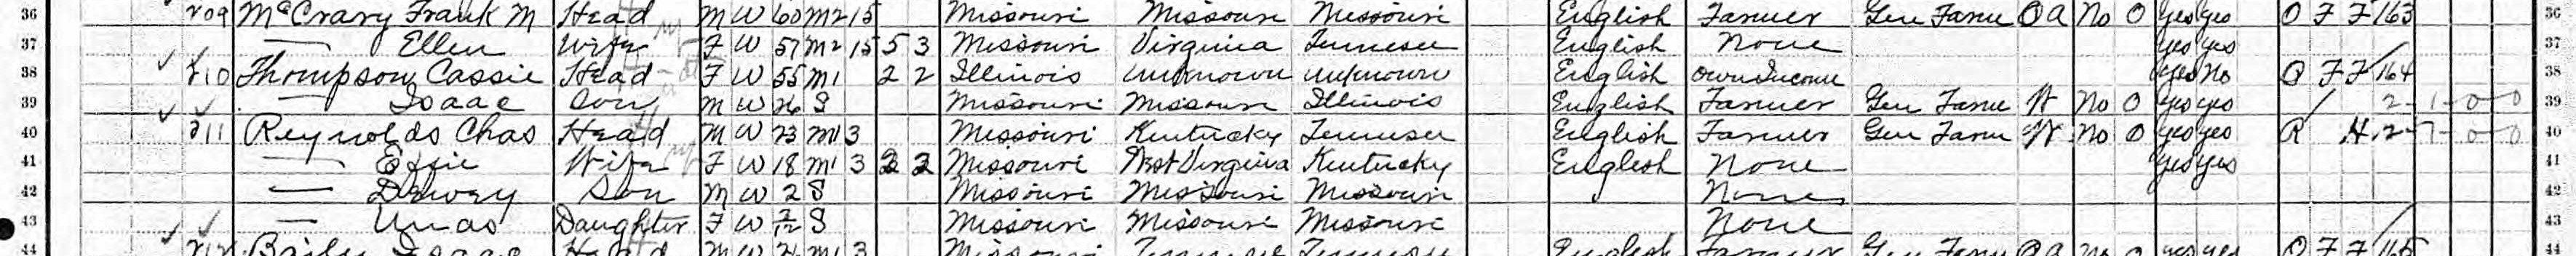 36 209 McCrary Frank M Head M W 60 M2 15 Missouri Missouri Missouri English Farmer Gen Farm OA No 0 yes yes O F F 163 36
37 — Ellen Wife F W 57 M2 15 5 3 Missouri Virginia Tennessee English None yes yes 37
38 210 Thompson Cassie Head F W 55 M1 2 2 Illinois Unknown Unknown English Own Income yes No O F F 164 38
39 — Isaac Son M W 26 S Missouri Missouri Illinois English Farmer Gen Farm W No 0 yes yes 2-1-0-0 39
40 211 Reynolds Chas Head M W 23 M1 3 Missouri Kentucky Tennessee English Farmer Gen Farm W No 0 yes yes R H 2-7-0-0 40
41 — Effie Wife F W 18 M1 3 2 2 Missouri West Virginia Kentucky English None yes yes 41
42 — Dewey Son M W 2 S Missouri Missouri Missouri None 42
43 — Unas Daughter F W 7/12 S Missouri Missouri Missouri None 43
44 212 Isaac Head M W M1 3 Missouri Tennessee Tennessee English Farmer Gen Farm OA No 0 yes yes O F F 165 44